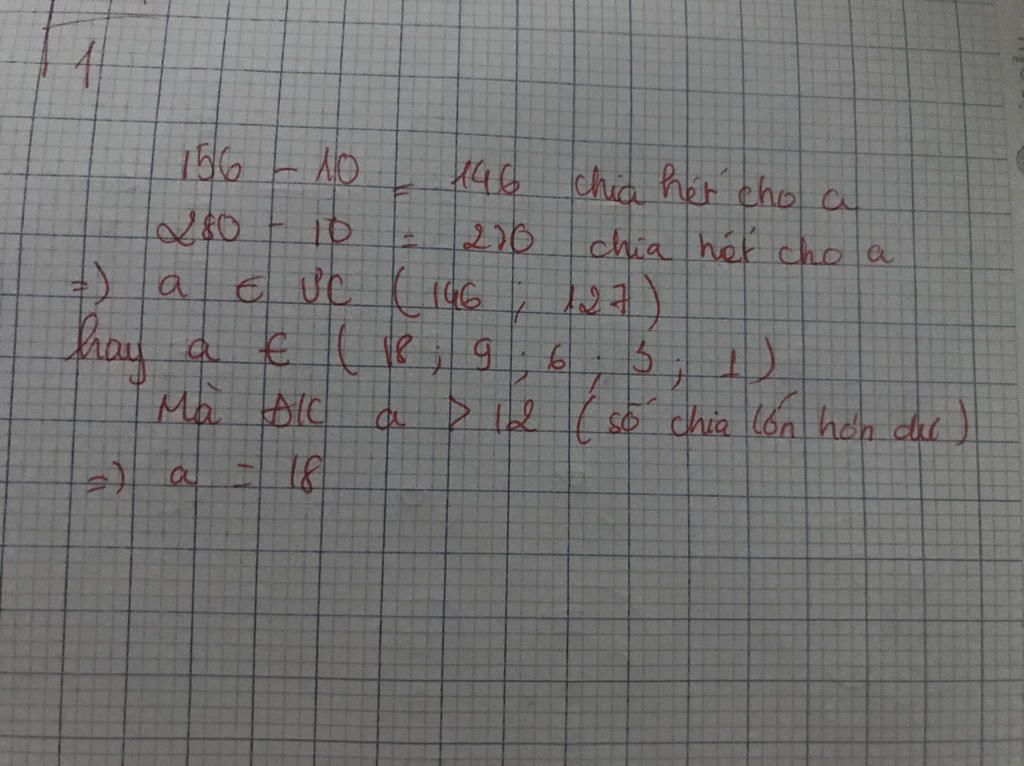 1
156 - 10 = 146 chia hết cho a
280 - 10 = 270 chia hết cho a
=) a ∈ ƯC (146 ; 127)
hay a ∈ (18 ; 9 ; 6 ; 3 ; 1)
Mà ĐK a > 12 (số chia lớn hơn dư)
=) a = 18